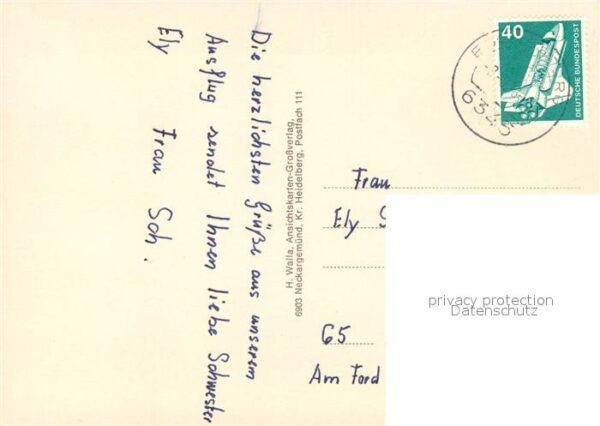 Die herzlichsten Grüße aus unserem
Ausflug sendet Ihnen liebe Schwester
Ely Frau Sch.
H. Walla, Ansichtskarten-Großverlag,
6903 Neckargemünd, Kr. Heidelberg, Postfach 111
40
DEUTSCHE BUNDESPOST
Frau
Ely
65
Am Ford
privacy protection
Datenschutz